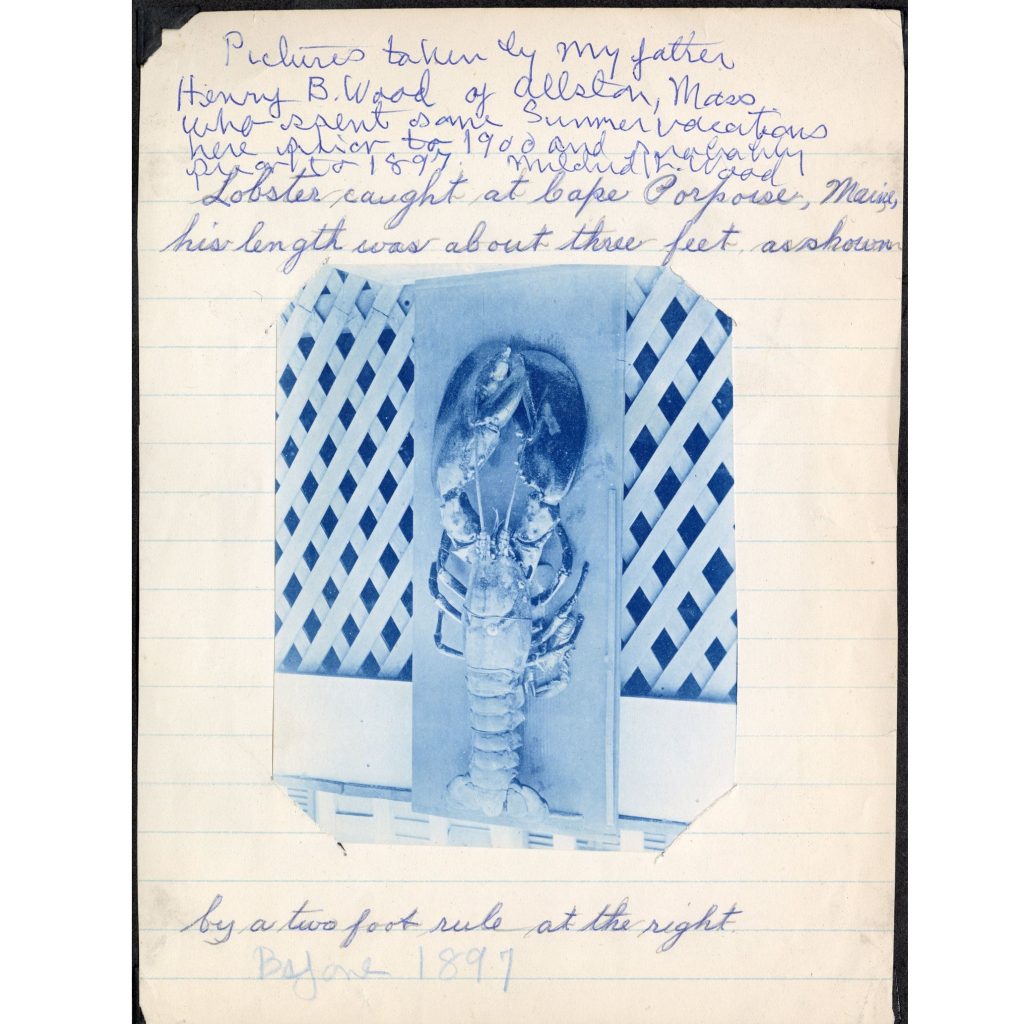 Pictures taken by my father
Henry B. Wood of Allston, Mass.
who spent some Summer vacations
here prior to 1900 and probably
prior to 1897. Mildred Wood
Lobster caught at Cape Porpoise, Maine,
his length was about three feet, as shown
by a two foot rule at the right.
Before 1897